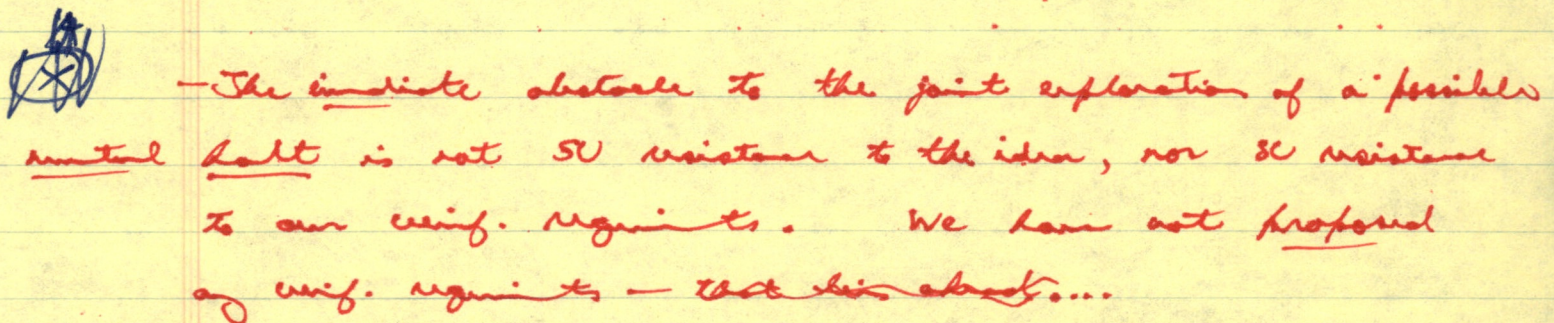 - The immediate obstacle to the joint exploration of a possible
mutual halt is not SU resistance to the idea, nor SU resistance
to our verif. requirements. We have not proposed
any verif. requirements - that lies ahead....